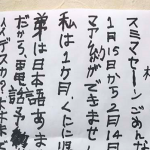 スミマセーンごめんな
1月15日から2月14日
マア約ができませ
私は1ケ月、くにに
弟は日本語あま
だから、電話予
イデスカ